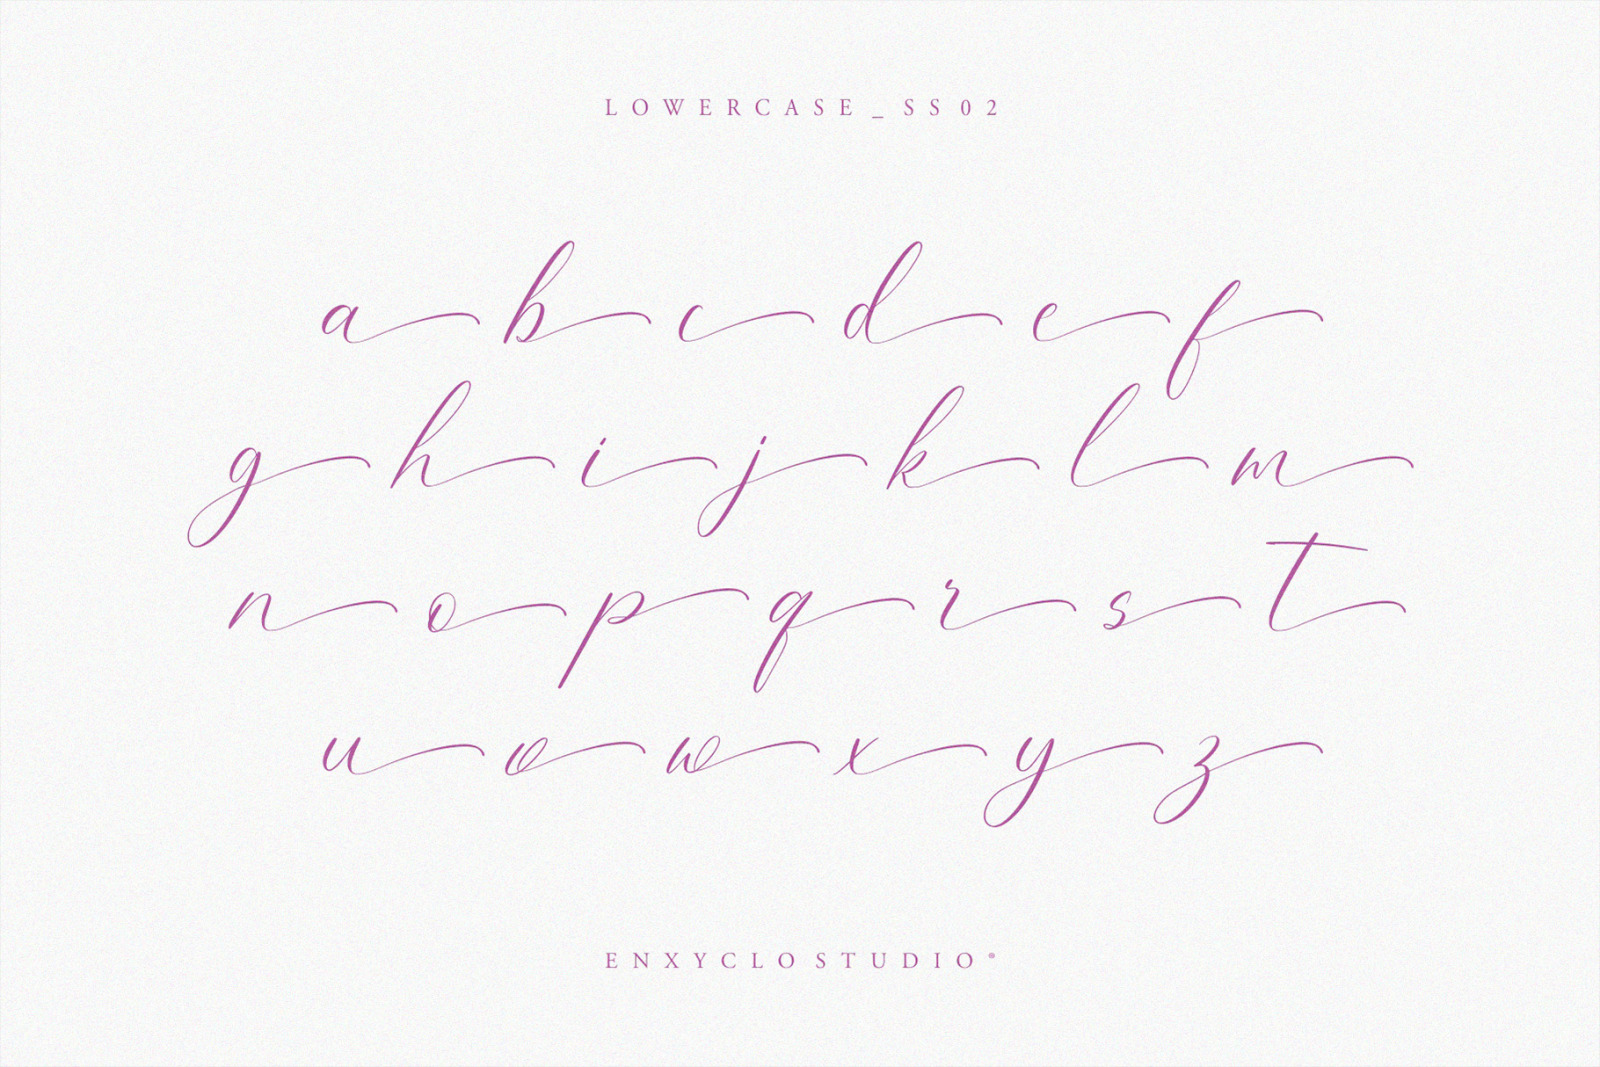 LOWERCASE_SS02
a b c d e f
g h i j k l m
n o p q r s t
u v w x y z
ENXYCLO STUDIO®